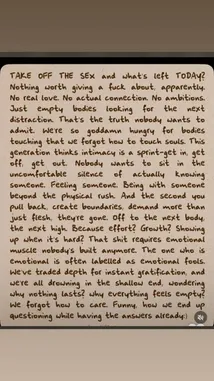 TAKE OFF THE SEx and what's left TODAY?
Nothing worth giving a fuck about, apparently.
No real love. No actual connection. No ambitions.
Just empty bodies looking for the next
distraction. That's the truth nobody wants to
admit. We're so goddamn hungry for bodies
touching that we forgot how to touch souls. This
generation thinks intimacy is a sprint-get in, get
off, get out. Nobody wants to sit in the
uncomfortable silence of actually knowing
someone. Feeling someone. Being with someone
beyond the physical rush. And the second you
pull back, create boundaries, demand more than
just flesh, they're gone. Off to the next body,
the next high. Because effort? Growth? Showing
up when it's hard? That shit requires emotional
muscle nobody's built anymore. The one who is
emotional is often labelled as emotional fools.
We've traded depth for instant gratification, and
we're all drowning in the shallow end, wondering
why nothing lasts? why everything feels empty?
We forgot how to care. Funny, how we end up
questioning while having the answers already:)